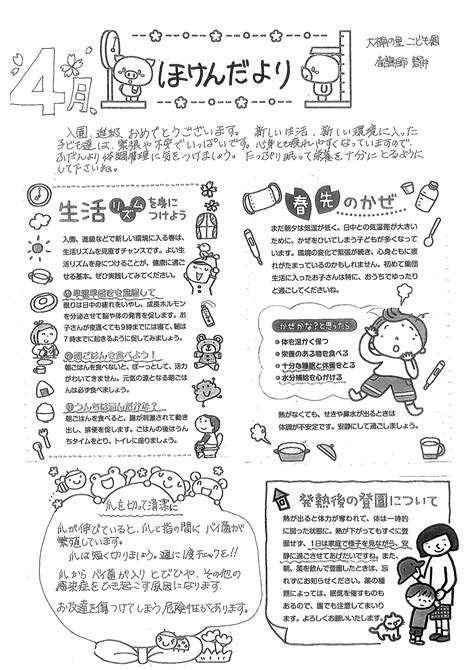 4月
ほけんだより
入園、進級、おめでとうございます。 新しい生活、新しい環境に入った
子ども達は、緊張や不安でいっぱいです。心身とも疲れやすくなっていますので、
ふだんより体調管理に気をつけましょう。たっぷり眠って栄養を十分にとるように
して下さいね。
生活リズムを身に
つけよう
入園、進級などで新しい環境に入る春は、
生活リズムを見直すチャンスです。よい生
活リズムを身につけることが、健康に過ご
せる基本。ぜひ実践してみてください。
眠りは日中の疲れをいやし、成長ホルモン
を分泌させて脳や体の発育を促します。お
子さんが夜遅くても9時までには寝て、朝は
7時までに起きるように促してみましょう。
朝ごはんを食べよう!
朝ごはんを食べないと、ぼーっとして、活力
がわいてきません。元気の源となる朝ごは
んは必ず食べましょう。
朝ごはんを食べると、腸が刺激されて動き
出し、排便を促します。ごはんの後はうん
ちタイムをとり、トイレに座りましょう。
春先のかぜ
まだ朝夕は気温が低く、日中との気温差が大きい
ために、かぜをひいてしまう子どもが多くなって
います。環境の変化で緊張が続き、心身ともに疲
れがたまっているのかもしれません。初めて集団
生活に入ったお子さんは特に、おうちでゆったり
と過ごしてくださいね。
かぜかな?と思ったら
体を温かく保つ
栄養のある物を食べる
十分な睡眠と休養をとる
水分補給を心がける
熱がなくても、せきや鼻水が出るときは
体調が不安定です。安静にして過ごしましょう。
爪を切って清潔に
爪が伸びていると、爪と指の間にバイ菌が
繁殖しています。
爪は短く切りましょう。週に1度チェックを!!
爪からバイ菌が入りとびひや、その他の
感染症をひき起こす原因になります。
お友達を傷つけてしまう危険性があります。
発熱後の登園について
熱が出ると体力が奪われて、体は一時的
に弱った状態に。熱が下がってもすぐに登
園せず、1日は家庭で様子を見ながら、安
静に過ごさせてあげたいですね。また、
朝、薬を飲んで登園したときは、忘
れずにお知らせください。薬の種
類によっては、眠気を催すものも
あるので、園でも注意してまいり
ます。よろしくお願いいたします。